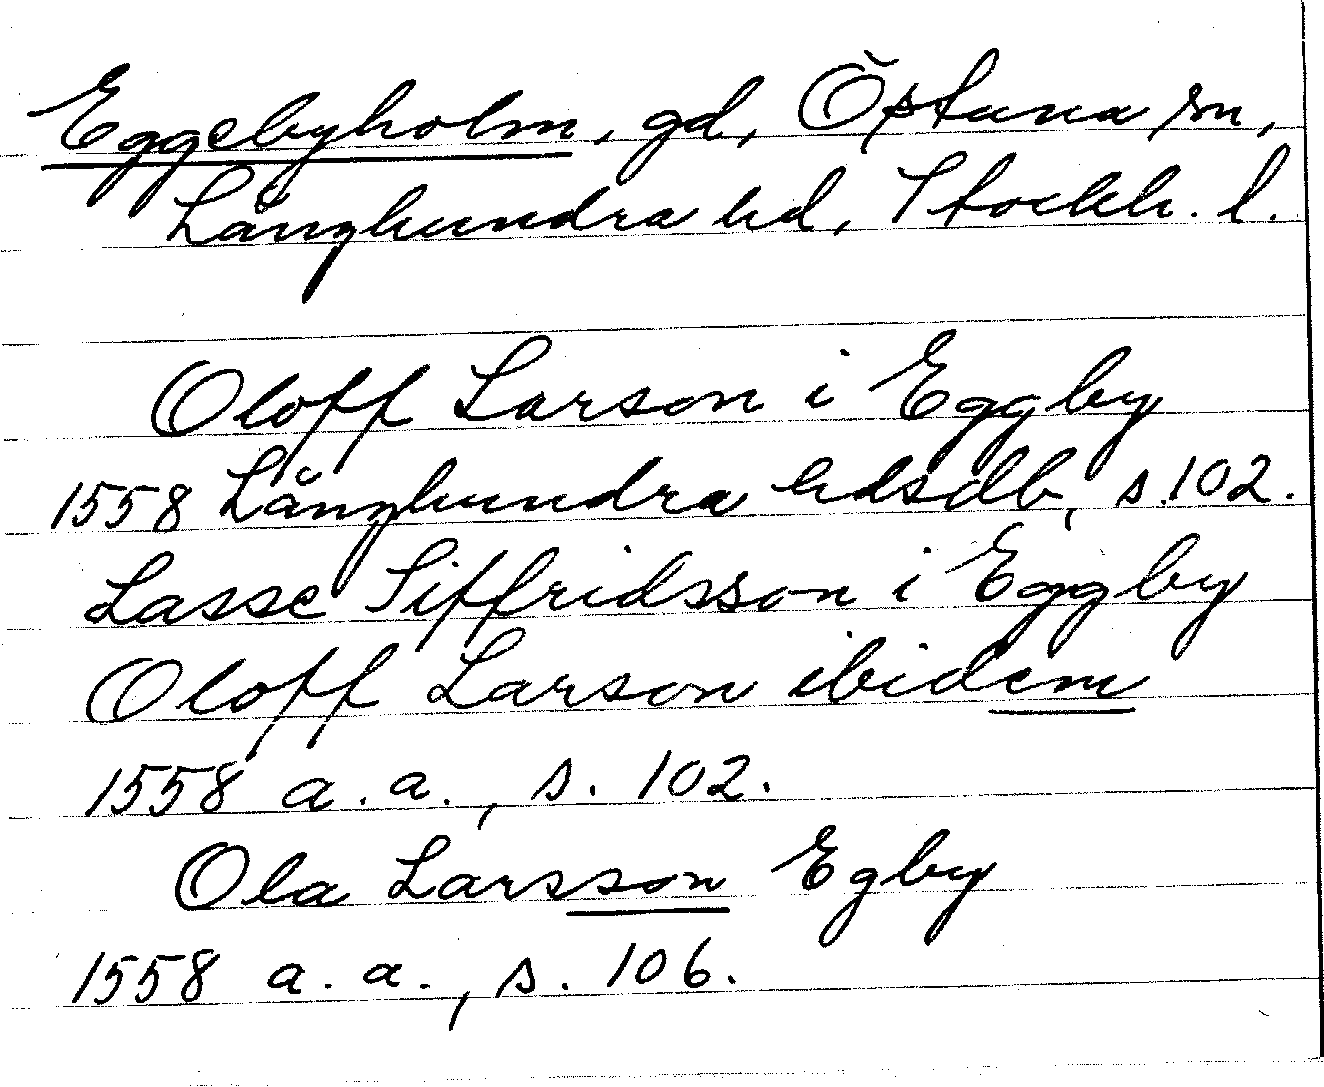 Eggebyholm, gd, Östuna sn,
Långhundra hd, Stockh. l.
Oloff Larson i Eggby
1558 Långhundra hdsdb, s. 102.
Lasse Siffridsson i Eggby
Oloff Larson ibidem
1558 a. a., s. 102.
Ola Larsson Egby
1558 a. a., s. 106.